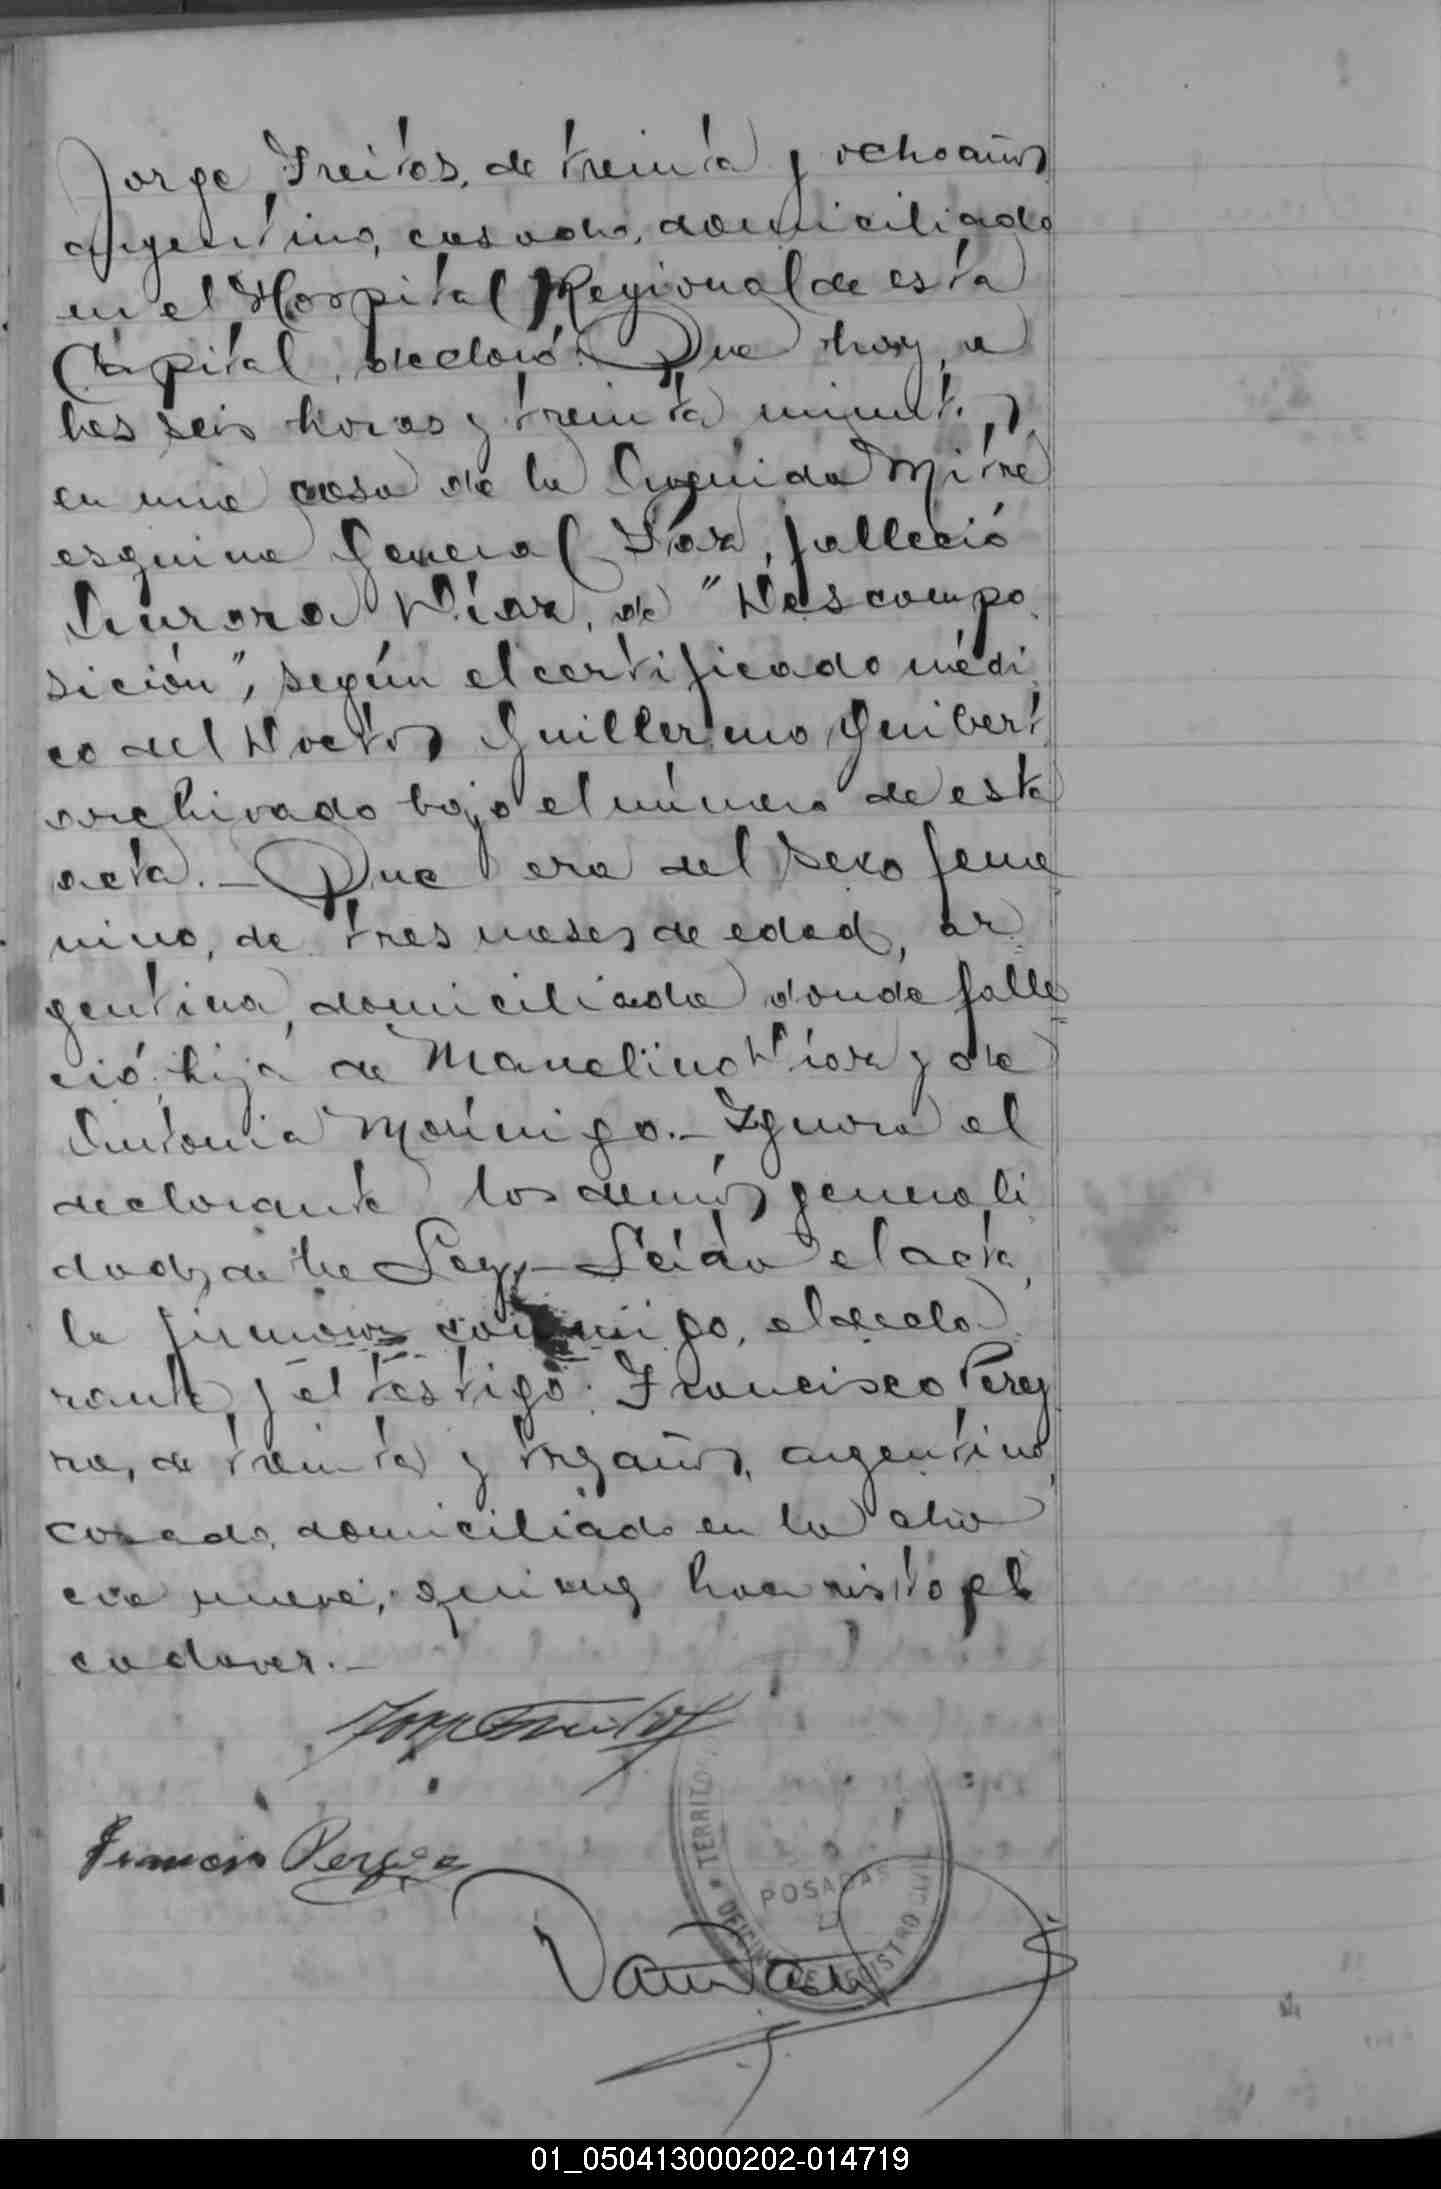 Jorge Freitas, de treinta y ocho años
argentino, casado, domiciliado
en el Hospital Regional de esta
Capital, declaró: Que hoy, a
las seis horas y treinta minutos,
en una casa de la Avenida Mitre
esquina General Paz, falleció
Aurora Díaz, de "Descompo
sición", según el certificado médi
co del Doctor Guillermo Guibert
archivado bajo el número de esta
acta.- Que era del sexo feme
nino, de tres meses de edad, ar
gentina, domiciliada donde falle
ció, hija de Marcelino Díaz y de
Antonia Morínigo.- Ignora el
declarante las demás generali
dades de la Ley.- Leída el acta,
la firman conmigo, el decla
rante y el testigo: Francisco Perey
ra, de treinta y tres años, argentino,
casado, domiciliado en la cha
cra nueve, quienes han visto el
cadaver.-
Jorge Freitas
Francisco Pereyra
TERRITORIO
POSADAS
OFICINA DE REGISTRO CIVIL
01_050413000202-014719